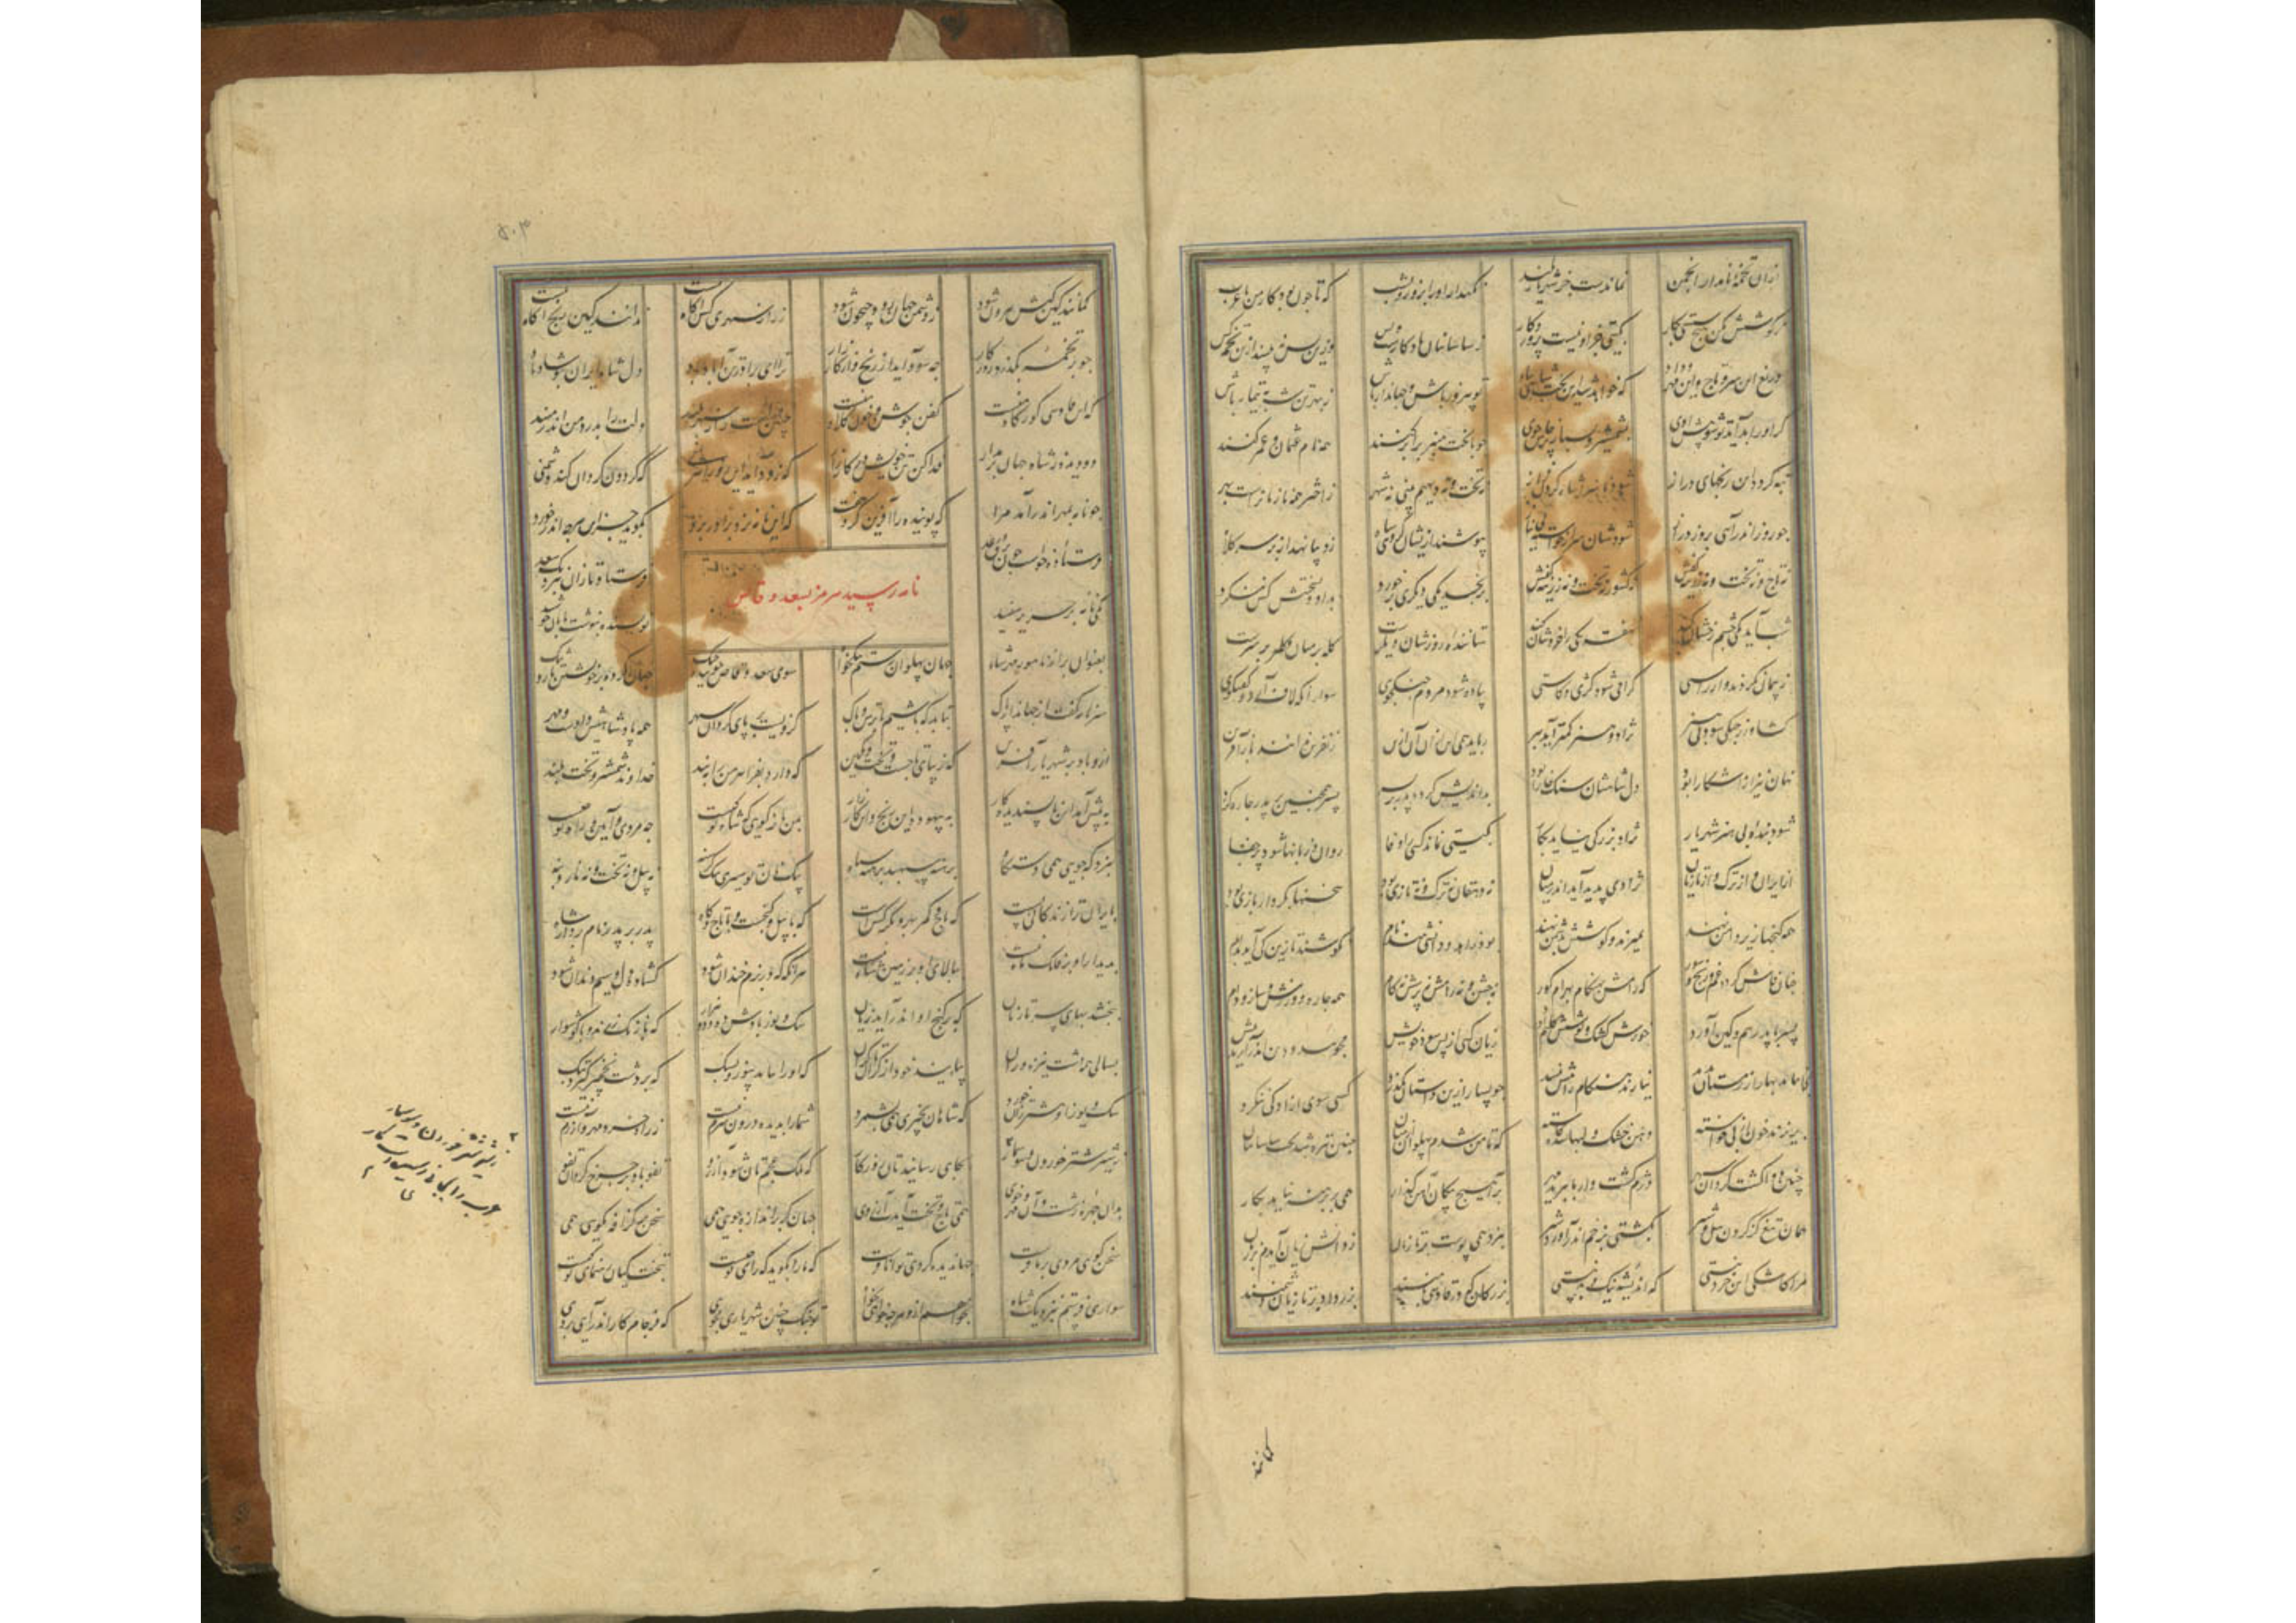 ازان تخمهٔ نامدار نماندست جز شهریار بلند نگهدار او را بروز و بشب که تا چون بود کار من با عرب
ز کوشش مکن هیچ سستی بکار بگیتی جز او نیست پروردگار ز ساسانیان یادگارست و بس کزین پس نبیند ازین تخمه کس
دریغ این سر و تاج و این مهر و داد که خواهد شدن تخت شاهی بباد تو پدرود باش و جهاندار باش ز بهر تن شه بتیمار باش
گر او را بد آید تو شو پیش اوی بشمشیر بسپار پرخاشجوی چو با تخت منبر برابر کنند همه نام عثمان و عمر کنند
تبه گردد این رنجهای دراز نه تخت و نه دیهیم بینی نه شهر ز اختر همه تازیانراست بهر
چو روز اندر آید بروز دراز شودشان سر از خواسته بی نیاز بپوشند ازیشان گروهی سیاه ز دیبا نهند از بر سر کلاه
نه تاج و نه تخت و نه زرینه کفش برنجد یکی دیگری برخورد بداد و ببخشش کس ننگرد
شب آید یکی چشم رخشان کند نهفته کسی را خروشان کند ستاننده روزشان دیگرست
ز پیمان بگردند و از راستی گرامی شود کژی و کاستی پیاده شود مردم جنگجوی سوار آنکه لاف آرد و گفتگوی
کشاورز جنگی شود بی هنر نژاد و هنر کمتر آید ببر رباید همی این ازان آن ازین ز نفرین ندانند باز آفرین
نهان نیز از آشکارا بود دل شاهشان سنگ خارا بود بداندیش گردد پدر بر پسر پسر همچنین بر پدر چاره گر
شود بنده بی هنر شهریار نژاد و بزرگی نیاید بکار بگیتی نماند کسی را وفا روان و زبانها شود پر جفا
از ایران و از ترک و از تازیان نژادی پدید آید اندر میان نه دهقان نه ترک و نه تازی بود سخنها بکردار بازی بود
همه گنجها زیر دامن نهند بمیرند و کوشش بدشمن دهند بود زاهد و دانشی مند نام بکوشند تا زین کی آید بدام
چنان فاش گردد غم و رنج و شور که رامش بهنگام بهرام گور نه جشن و نه رامش نه کام همه چاره و ورزش و ساز دام
خورش کشک و پوشش گلیم آورد زیان کسان از پی سود خویش بجویند و دین اندر آرند پیش
نباشد بهار از زمستان پدید نیارند هنگام رامش نبید چو بسیار ازین داستان بگذرد کسی سوی آزادگی ننگرد
بریزند خون از پی خواسته دهن خشک و لبها شده کاسته که تا من شدم پهلوان از میان چنین تیره شد بخت ساسانیان
چنین بی وفا گشت گردان سپهر دژم گشت و از ما ببرید مهر همی بر برهنه نیاید بکار
همان تیغ کز گردن پیل و شیر نگشتی بزخم اندر آورد سیر نبرد همی پوست بر تازیان ز دانش زیان آیدم بر زیان
مرا کاشکی این خرد نیستی که اندیشه نیک و بد نیستی بزرگان که در قادسی بر تازیان دشمنند
گمانند
۵۰۳
گمانند کین بیش بیرون شود ز دشمن جهان رود جیحون شود ز راز سپهری کس آگاه نیست ندانند کین رنج کوتاه نیست
چو بر تخمه بگذرد روزگار چه سود آید از رنج و از کارزار ترا ای برادر تن آباد باد دل شاه ایران بتو شاد باد
که این قادسی گورگاه منست کفن جوشن و خون کلاه منست چنین است راز سپهر بلند دلت را بدرد من اندر مبند
دو دیده ز شاه جهان برمدار فدا کن تن خویش در کارزار که زود آید این روز که گردون گردان کند دشمنی
چو نامه بمهر اندر آمد که پوینده را آفرین که این نامه نزد برادر برد بگوید جز این هرچه اندر خورد
فرستاده چون برق و رعد فرستاد تازان بنزدیک سعد
نامه رستم هرمز بسعد وقاص
یکی نامه بر حریر سفید نویسنده بنوشت تابان چو شید
بعنوان بر از پور هرمزد شاه جهان پهلوان رستم نیکخواه سوی سعد وقاص جوینده جنگ جهان کرده بر خویشتن تار و تنگ
سر نامه گفت از جهاندار پاک بباید که باشیم با ترس و باک کزویست بر پای گردان سپهر همه پادشاهیش دادست و مهر
ازو باد بر شهریار آفرین که زیبای تاجست و تخت و نگین که دارد بفر اهرمن را ببند خداوند شمشیر و تخت بلند
به پیش آمد این ناپسندیده کار به بیهوده این رنج و این کارزار بمن بازگوی که شاه تو کیست چه مردی و آیین و راه تو چیست
بنزد که جویی همی دستگاه برهنه سپهبد برهنه سپاه نه پیل و نه تخت و نه بار و بنه
بایران ترا زندگانی بس است که تاج و کمر بهر دیگر کس است که با پیل و گنجست و با تاج و گاه پدر بر پدر نام بردار شاه
بدیدار او بر فلک ماه نیست ببالای او بر زمین شاه نیست هرآنگه که در بزم خندان شود گشاده لب و سیم دندان شود
ببخشد بهای سر تازیان که بر گنج او اندر آید زیان سگ و یوز و بازش ده و دو هزار که با زنگ و زرند و با گوشوار
بسالی همه دشت نیزه وران نیابند خورد از کران تا کران که او را بباید بیوز و بسگ که بر دشت نخچیر گیرد بتگ
سگ و یوز او بیشتر زان خورد که شاه آن بچیزی همی نشمرد شما را بدیده درون شرم نیست ز راه خرد مهر و آزرم نیست
ز شیر شتر خوردن و سوسمار بجایی رسانید کار که ملک عجم تان شود آرزو تفو باد بر چرخ گردان تفو
بدان چهره زشت و آن مهر و خوی همی تاج و تخت آیدت آرزوی جهان گر باندازه جویی همی سخن بر گزافه نگویی همی
سخن گوی مردی بر ما فرست جهاندیده گردی توانا فرست که ما را بگوید که رای تو چیست بتخت کیان رهنمای تو کیست
سواری فرستم بنزدیک شاه بخواهم ازو هرچه خواهی بخواه تو جنگ چنین شهریاری مجوی که فرجام کار اندر آید بروی
ز شیر شتر خوردن و سوسمار
عرب را بجایی رسیدست کار